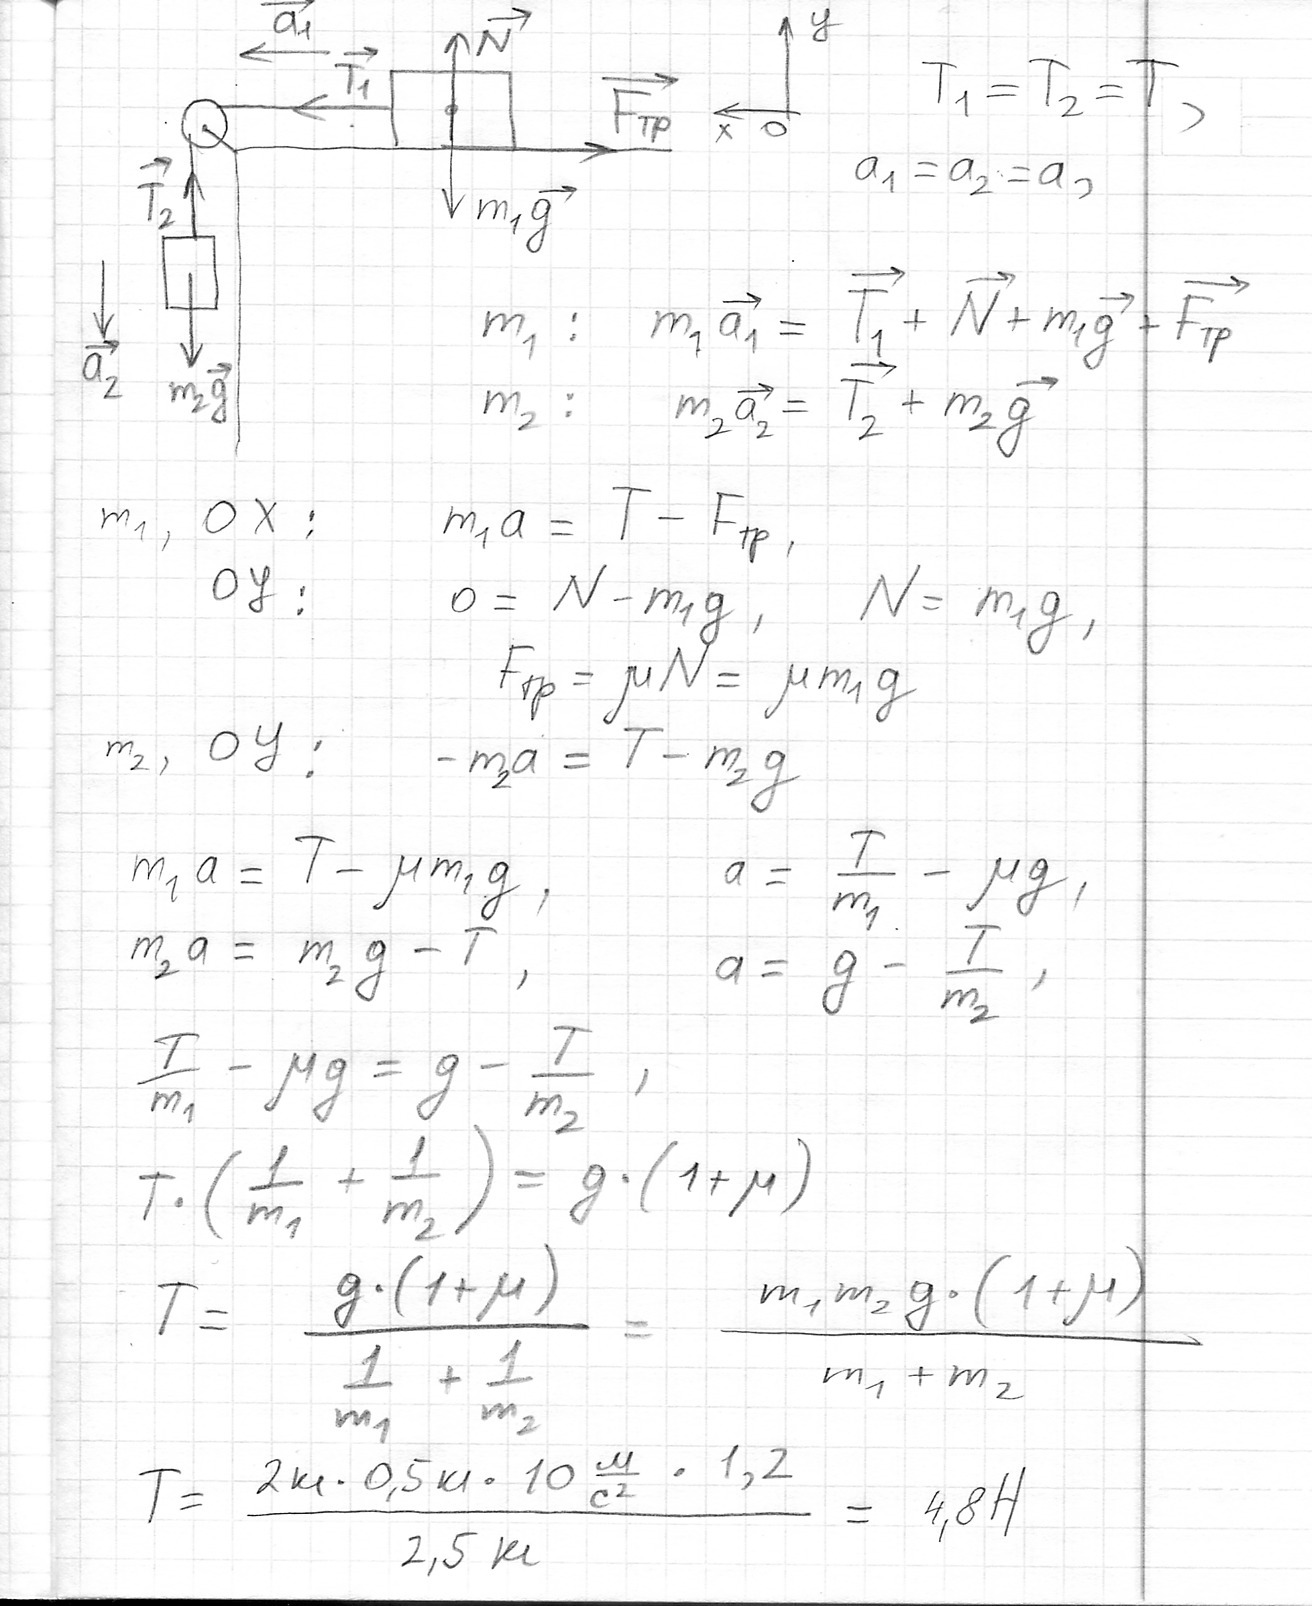 a⃗₁
N⃗
y
T⃗₁
F⃗тр
x 0
T₁ = T₂ = T,
a₁ = a₂ = a,
T⃗₂
m₁g⃗
a⃗₂
m₂g⃗
m₁ : m₁a⃗₁ = T⃗₁ + N⃗ + m₁g⃗ + F⃗тр
m₂ : m₂a⃗₂ = T⃗₂ + m₂g⃗
m₁, OX: m₁a = T − Fтр,
OY: 0 = N − m₁g, N = m₁g,
Fтр = μN = μm₁g
m₂, OY: −m₂a = T − m₂g
m₁a = T − μm₁g, a = T/m₁ − μg,
m₂a = m₂g − T, a = g − T/m₂,
T/m₁ − μg = g − T/m₂,
T·(1/m₁ + 1/m₂) = g·(1+μ)
T = g·(1+μ) / (1/m₁ + 1/m₂) = m₁m₂g·(1+μ) / (m₁ + m₂)
T = 2кг·0,5кг·10 м/с² · 1,2 / 2,5 кг = 4,8Н